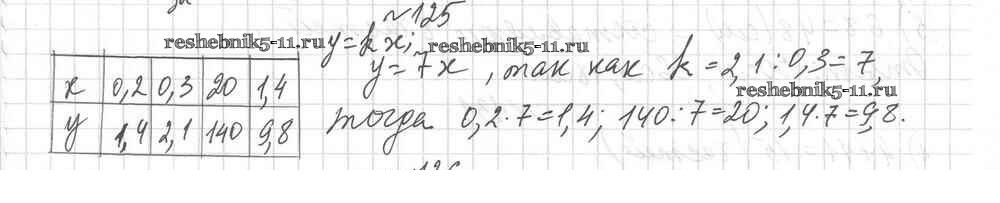 №125
reshebnik5-11.ru y=kx; reshebnik5-11.ru
y=7x, так как k=2,1:0,3=7,
reshebnik5-11.ru
x 0,2 0,3 20 1,4
y 1,4 2,1 140 9,8
тогда 0,2·7=1,4; 140:7=20; 1,4·7=9,8.